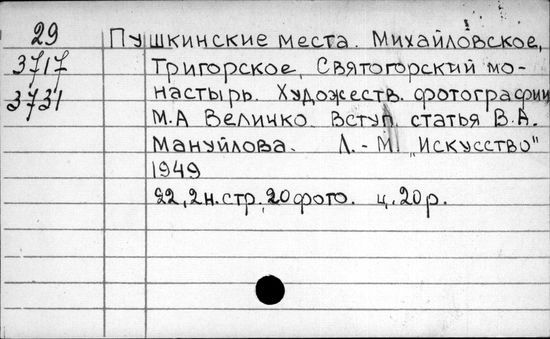 29
3717
3731
Пушкинские места. Михайловское,
Тригорское, Святогорский мо-
настырь. Художеств. фотографии
М.А Величко. Вступ. статья В.А.
Мануйлова. Л.-М. „Искусство"
1949
22, 2н.стр., 20 фото. ц. 20 р.